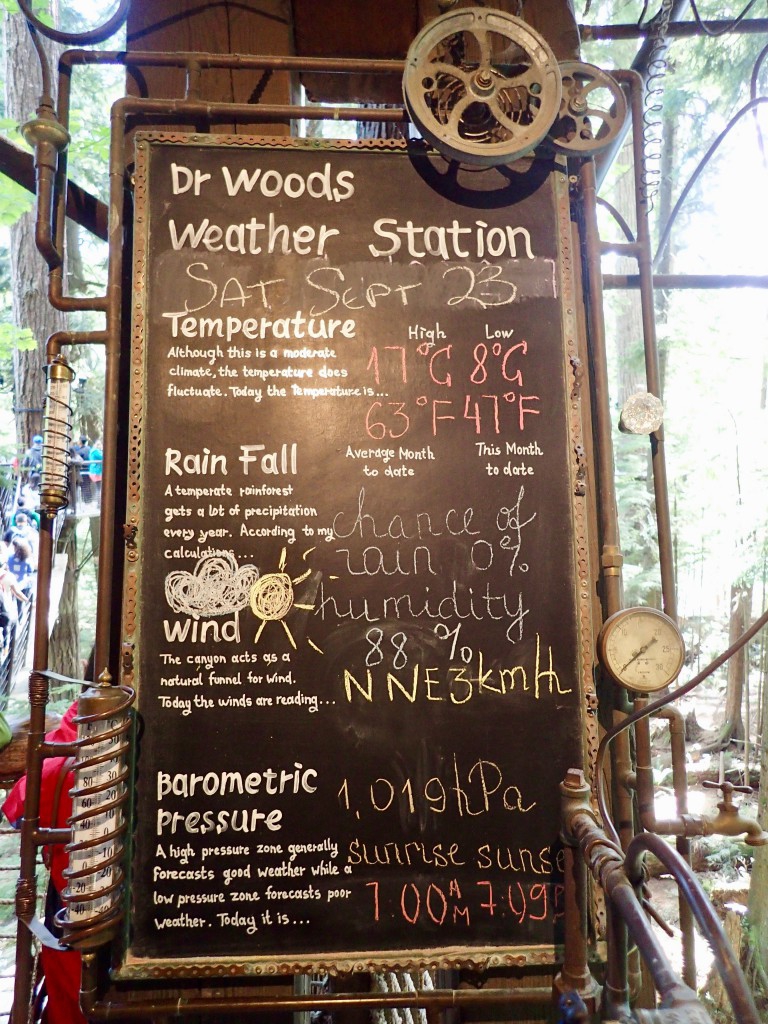 Dr Woods
Weather Station
SAT SEPT 23
Temperature
High Low
Although this is a moderate
climate, the temperature does
fluctuate. Today the Temperature is...
17°C 8°C
63°F 47°F
Rain Fall
Average Month
to date
This Month
to date
A temperate rainforest
gets a lot of precipitation
every year. According to my
calculations...
chance of
rain 0%
humidity
88 %
Wind
The canyon acts as a
natural funnel for wind.
Today the winds are reading...
NNE 3kmH
Barometric
Pressure
1,019hPa
A high pressure zone generally
forecasts good weather while a
low pressure zone forecasts poor
weather. Today it is...
sunrise sunse
7:00AM 7:09P